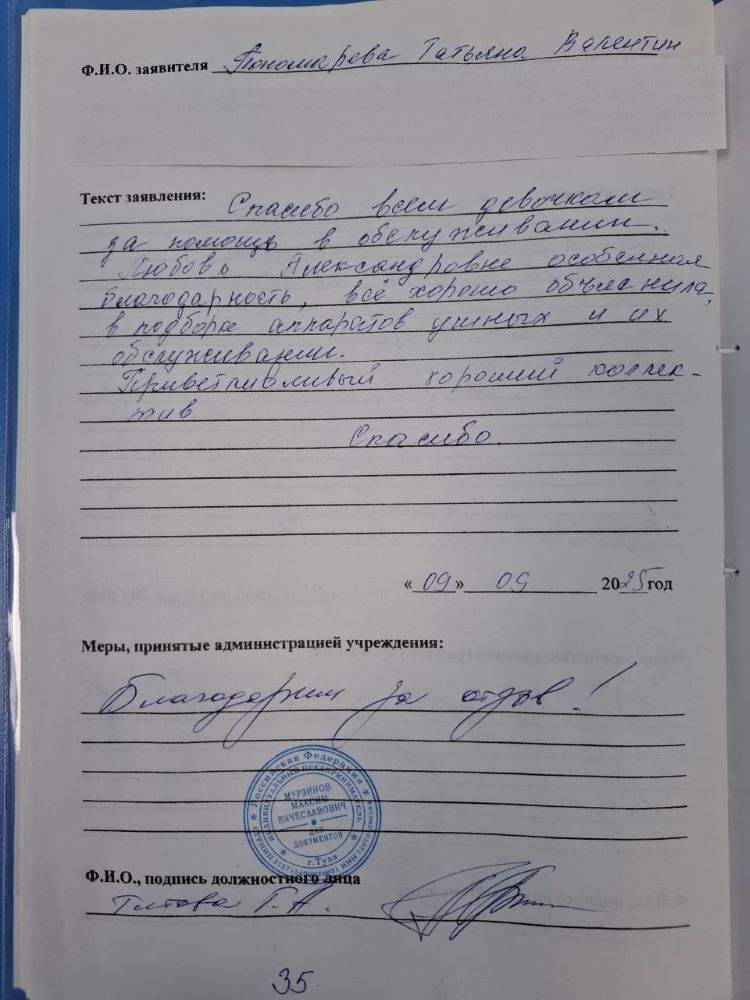 Ф.И.О. заявителя Пономарева Татьяна Валентин
Текст заявления: Спасибо всем девочкам
за помощь в обслуживании.
Любовь Александровне особенная
благодарность, всё хорошо объяснила,
в подборе аппаратов ушных и их
обслуживании.
Приветливый хороший коллек-
тив
Спасибо.
«09» 09 2025 год
Меры, принятые администрацией учреждения:
Благодарим за отзыв!
Российская Федерация
ИНДИВИДУАЛЬНЫЙ ПРЕДПРИНИМАТЕЛЬ
МУРЗИНОВ
МАКСИМ
ВЯЧЕСЛАВОВИЧ
ДЛЯ
ДОКУМЕНТОВ
г.Тула
Ф.И.О., подпись должностного лица
Титова Г.А.
35